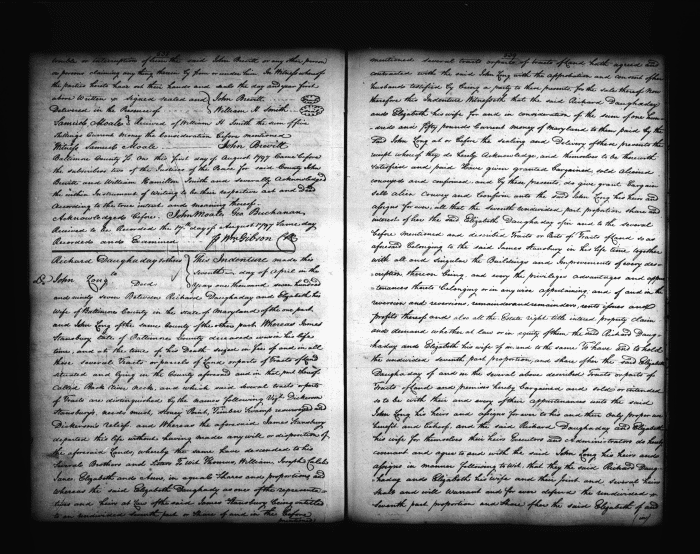 trouble or interruption of him the said John Brevitt or any other person
or persons claiming any thing thereof by from or under him In Witness whereof
the parties hereto have set their hands and seals the day and year first
above Written
signed sealed and John Brevitt
Delivered in the Presence of William H Smith
Samuel Moale Received of William H Smith the sum of five
shillings Current Money the Consideration before mentioned
Witness Samuel Moale John Brevitt
Baltimore County Sc On this first day of August 1797 Came before
the subscribers two of the Justices of the Peace for said County John
Brevitt and William Hamilton Smith and severally Acknowledged
the within Instrument of Writing to be their respective act and Deed
According to the true intent and meaning thereof
Acknowledged before John Moale Geo Buchanan
Received to be Recorded the 17th day of August 1797 same day
Recorded and Examined Wm Gibson
Richard Daughaday & others This Indenture made this
to
John Long Deed seventh day of April in the
year one thousand seven hundred
and ninety seven Between Richard Daughaday and Elizabeth his
Wife of Baltimore County in the state of Maryland of the one part
and John Long of the same County of the other part Whereas James
Stansbury late of Baltimore County deceased was in his life
time, and at the time of his Death seized in fee of and in all
those several Tracts or parcels of Land or parts of Tracts of Land
situated and lying in the County aforesaid and in that part thereof
Called Back River Neck, and which said several tracts or parts
of Tracts are distinguished by the names following Vizt Dickeson
Stansbury's Stoney Point, Timber Swamp resurveyed and
Dickeson's Relief. and Whereas the aforesaid James Stansbury
departed this life without having made any will or disposition of
the aforesaid Lands, whereby the same have descended to his
several Brothers and Sisters To wit Thomas, William, Joseph, Caleb
Jane Elizabeth and in equal Shares and proportions and
whereas the said Elizabeth Daughaday as one of the representa
tives and heirs at Law of the said James Stansbury being entitled
to an undivided seventh part or share of and in the before
mentioned several tracts or parts of tracts of Land hath agreed and
contracted with the said John Long with the approbation and consent of her
husband testified by being a party to these presents for the sale thereof Now
therefore this Indenture Witnesseth that the said Richard Daughaday
and Elizabeth his wife for and in consideration of the sum of one hun
dred and fifty pounds Current money of Maryland to them paid by the
said John Long at or before the sealing and Delivery of these presents the re
ceipt whereof they do hereby Acknowledge, and themselves to be therewith
satisfied and paid Have given granted bargained, sold aliened
conveyed and confirmed, and by these presents, do give grant bargain
sell alien Convey and Confirm unto the said John Long his heirs and
assigns for ever, all that the seventh undivided part proportion, share and
interest of her the said Elizabeth Daughaday of in and to the several
before mentioned and described Tracts or parts of Tracts of Land so as
aforesaid belonging to the said James Stansbury in his life time together
with all and singular the Buildings and Improvements of every des
cription thereon being, and every the privileges advantages and appur
tenances thereto belonging or in any wise appertaining and of and in the
reversion and reversions remainder and remainders, rents issues and
profits thereof and also all the Estate right title interest property claim
and demand whether at law or in equity of them the said Richard Daug
haday and Elizabeth his wife of in and to the same To have and to hold
the undivided seventh part proportion, and share of her the said Elizabeth
Daughaday of and in the several above described Tracts or parts of
Tracts of Land and premises hereby bargained and sold or intended
so to be with their and every of their appurtenances unto the said
John Long his heirs and assigns for ever to his and their only proper use
benefit and behoof. and the said Richard Daughaday and Elizabeth
his wife for themselves their heirs Executors and Administrators do hereby
covenant and agree to and with the said John Long his heirs and
assigns in manner following to wit that they the said Richard Daug
haday and Elizabeth his wife and their joint and several heirs
shall and will warrant and for ever defend the undivided
seventh part proportion and share of her the said Elizabeth of and
in